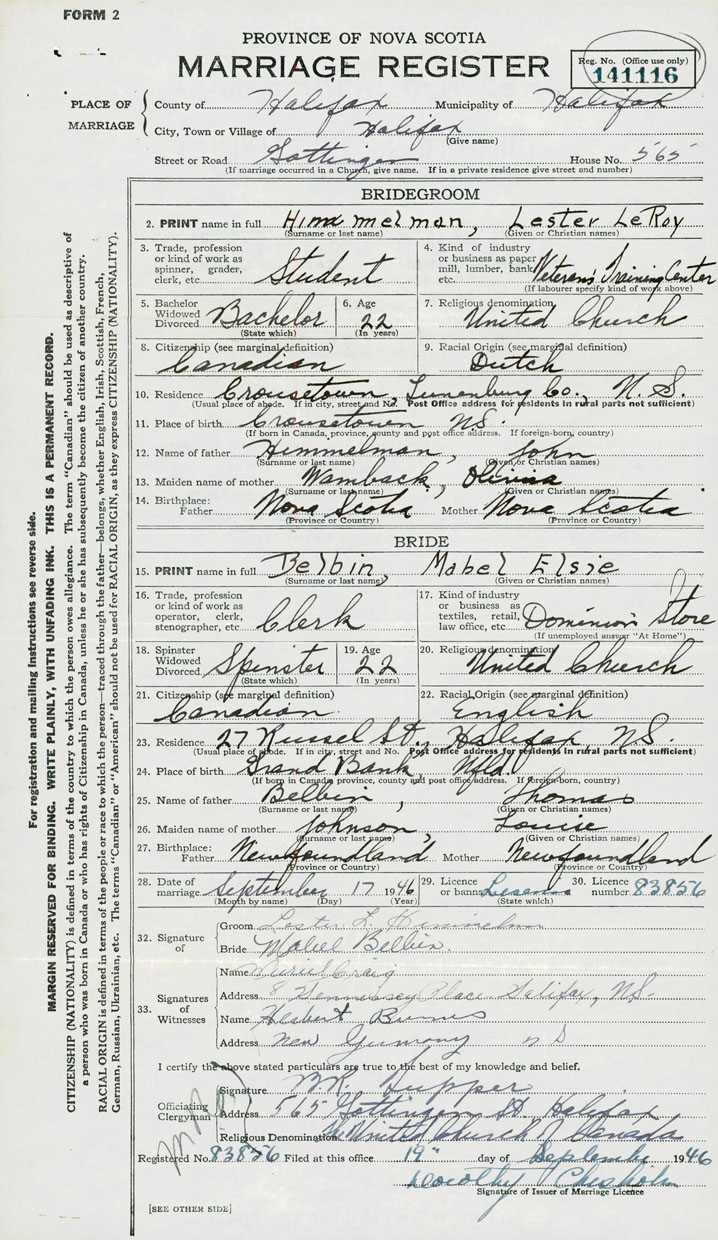 FORM 2
PROVINCE OF NOVA SCOTIA
MARRIAGE REGISTER
Reg. No. (Office use only)
141116
PLACE OF MARRIAGE
County of Halifax Municipality of Halifax
City, Town or Village of Halifax
(Give name)
Street or Road Gottingen House No. 565
(If marriage occurred in a Church, give name. If in a private residence give street and number)
BRIDEGROOM
2. PRINT name in full Himmelman, Lester LeRoy
(Surname or last name) (Given or Christian names)
3. Trade, profession or kind of work as spinner, grader, clerk, etc. Student
4. Kind of industry or business as paper mill, lumber, bank, etc. Veterans Training Center
(If labourer specify kind of work above)
5. Bachelor Widowed Divorced Bachelor
(State which)
6. Age 22
(In years)
7. Religious denomination United Church
8. Citizenship (see marginal definition) Canadian
9. Racial Origin (see marginal definition) Dutch
10. Residence Crousetown, Lunenburg Co., N.S.
(Usual place of abode. If in city, street and No. Post Office address for residents in rural parts not sufficient)
11. Place of birth Crousetown NS.
(If born in Canada, province, county and post office address. If foreign-born, country)
12. Name of father Himmelman, John
(Surname or last name) (Given or Christian names)
13. Maiden name of mother Wamback, Olivia
(Surname or last name) (Given or Christian names)
14. Birthplace: Father Nova Scotia Mother Nova Scotia
(Province or Country) (Province or Country)
BRIDE
15. PRINT name in full Belbin, Mabel Elsie
(Surname or last name) (Given or Christian names)
16. Trade, profession or kind of work as operator, clerk, stenographer, etc. Clerk
17. Kind of industry or business as textiles, retail, law office, etc. Dominion Store
(If unemployed answer "At Home")
18. Spinster Widowed Divorced Spinster
(State which)
19. Age 22
(In years)
20. Religious denomination United Church
21. Citizenship (see marginal definition) Canadian
22. Racial Origin (see marginal definition) English
23. Residence 27 Russel St., Halifax, NS.
(Usual place of abode. If in city, street and No. Post Office address for residents in rural parts not sufficient)
24. Place of birth Grand Bank, Nfld.
(If born in Canada, province, county and post office address. If foreign-born, country)
25. Name of father Belbin, Thomas
(Surname or last name) (Given or Christian names)
26. Maiden name of mother Johnson, Louise
(Surname or last name) (Given or Christian names)
27. Birthplace: Father Newfoundland Mother Newfoundland
(Province or Country) (Province or Country)
28. Date of marriage September 17 1946
(Month by name) (Day) (Year)
29. Licence or banns
(State which)
30. Licence number 83856
32. Signature of
Groom Lester L. Himmelman
Bride Mabel Belbin.
33. Signatures of Witnesses
Name Muriel Craig
Address 8 Hennessey Place Halifax, NS.
Name Herbert
Address New Germany NS
I certify the above stated particulars are true to the best of my knowledge and belief.
Officiating Clergyman
Signature Tupper
Address 565 Gottingen St. Halifax
Religious Denomination United Church of Canada
Registered No. 83856 Filed at this office 19 day of September 1946
Dorothy Chisholm
Signature of Issuer of Marriage Licence
[SEE OTHER SIDE]
For registration and mailing instructions see reverse side.
MARGIN RESERVED FOR BINDING. WRITE PLAINLY, WITH UNFADING INK. THIS IS A PERMANENT RECORD.
CITIZENSHIP (NATIONALITY) is defined in terms of the country to which the person owes allegiance. The term "Canadian" should be used as descriptive of
a person who was born in Canada or who has rights of Citizenship in Canada, unless he or she has subsequently become the citizen of another country.
RACIAL ORIGIN is defined in terms of the people or race to which the person—traced through the father—belongs, whether English, Irish, Scottish, French,
German, Russian, Ukrainian, etc. The terms "Canadian" or "American" should not be used for RACIAL ORIGIN, as they express CITIZENSHIP (NATIONALITY).